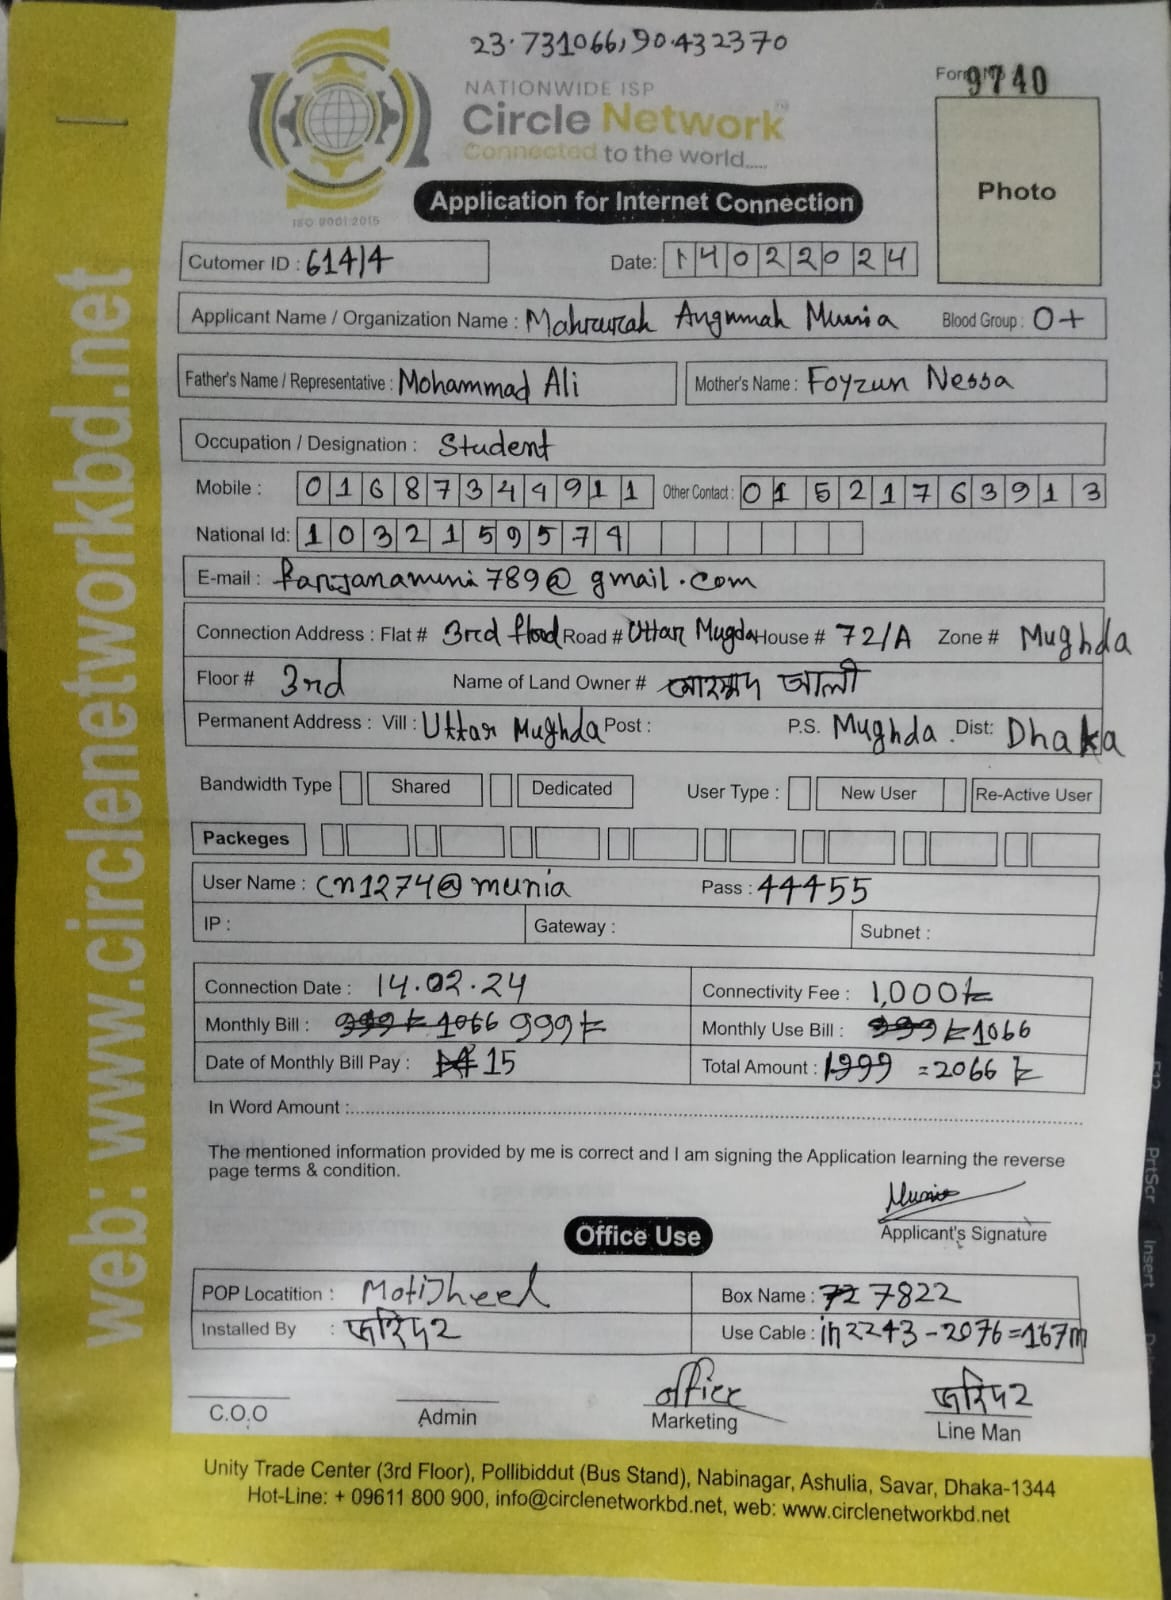 23.731066,90.432370
NATIONWIDE ISP
Circle Network
Connected to the world.....
ISO 9001:2015
9740
Photo
Application for Internet Connection
Cutomer ID : 61414
Date: 14022024
Applicant Name / Organization Name : Munia Blood Group : O+
Father's Name / Representative : Mohammad Ali Mother's Name : Foyzun Nessa
Occupation / Designation : Student
Mobile : 01687344911 Other Contact : 01521763913
National Id: 1032159574
E-mail : @ gmail.com
Connection Address : Flat # 3rd flood Road # Uttar Mugda House # 72/A Zone # Mughda
Floor # 3rd Name of Land Owner # আলী
Permanent Address : Vill : Uttar Mughda Post : P.S. Mughda Dist: Dhaka
Bandwidth Type Shared Dedicated User Type : New User Re-Active User
Packeges
User Name : cn1274@munia Pass : 44455
IP : Gateway : Subnet :
Connection Date : 14.02.24 Connectivity Fee : 1,000 tk
Monthly Bill : 999 tk 1066 999 tk Monthly Use Bill : 999 tk 1066
Date of Monthly Bill Pay : 15 Total Amount : 1999 = 2066 tk
In Word Amount :
The mentioned information provided by me is correct and I am signing the Application learning the reverse
page terms & condition.
Munia
Applicant's Signature
Office Use
POP Locatition : Motijheel Box Name : 72 7822
Installed By : Use Cable : in 2243-2076=167m
office
C.O.O Admin Marketing Line Man
Unity Trade Center (3rd Floor), Pollibiddut (Bus Stand), Nabinagar, Ashulia, Savar, Dhaka-1344
Hot-Line: + 09611 800 900, info@circlenetworkbd.net, web: www.circlenetworkbd.net
web: www.circlenetworkbd.net
PrtScr
Insert